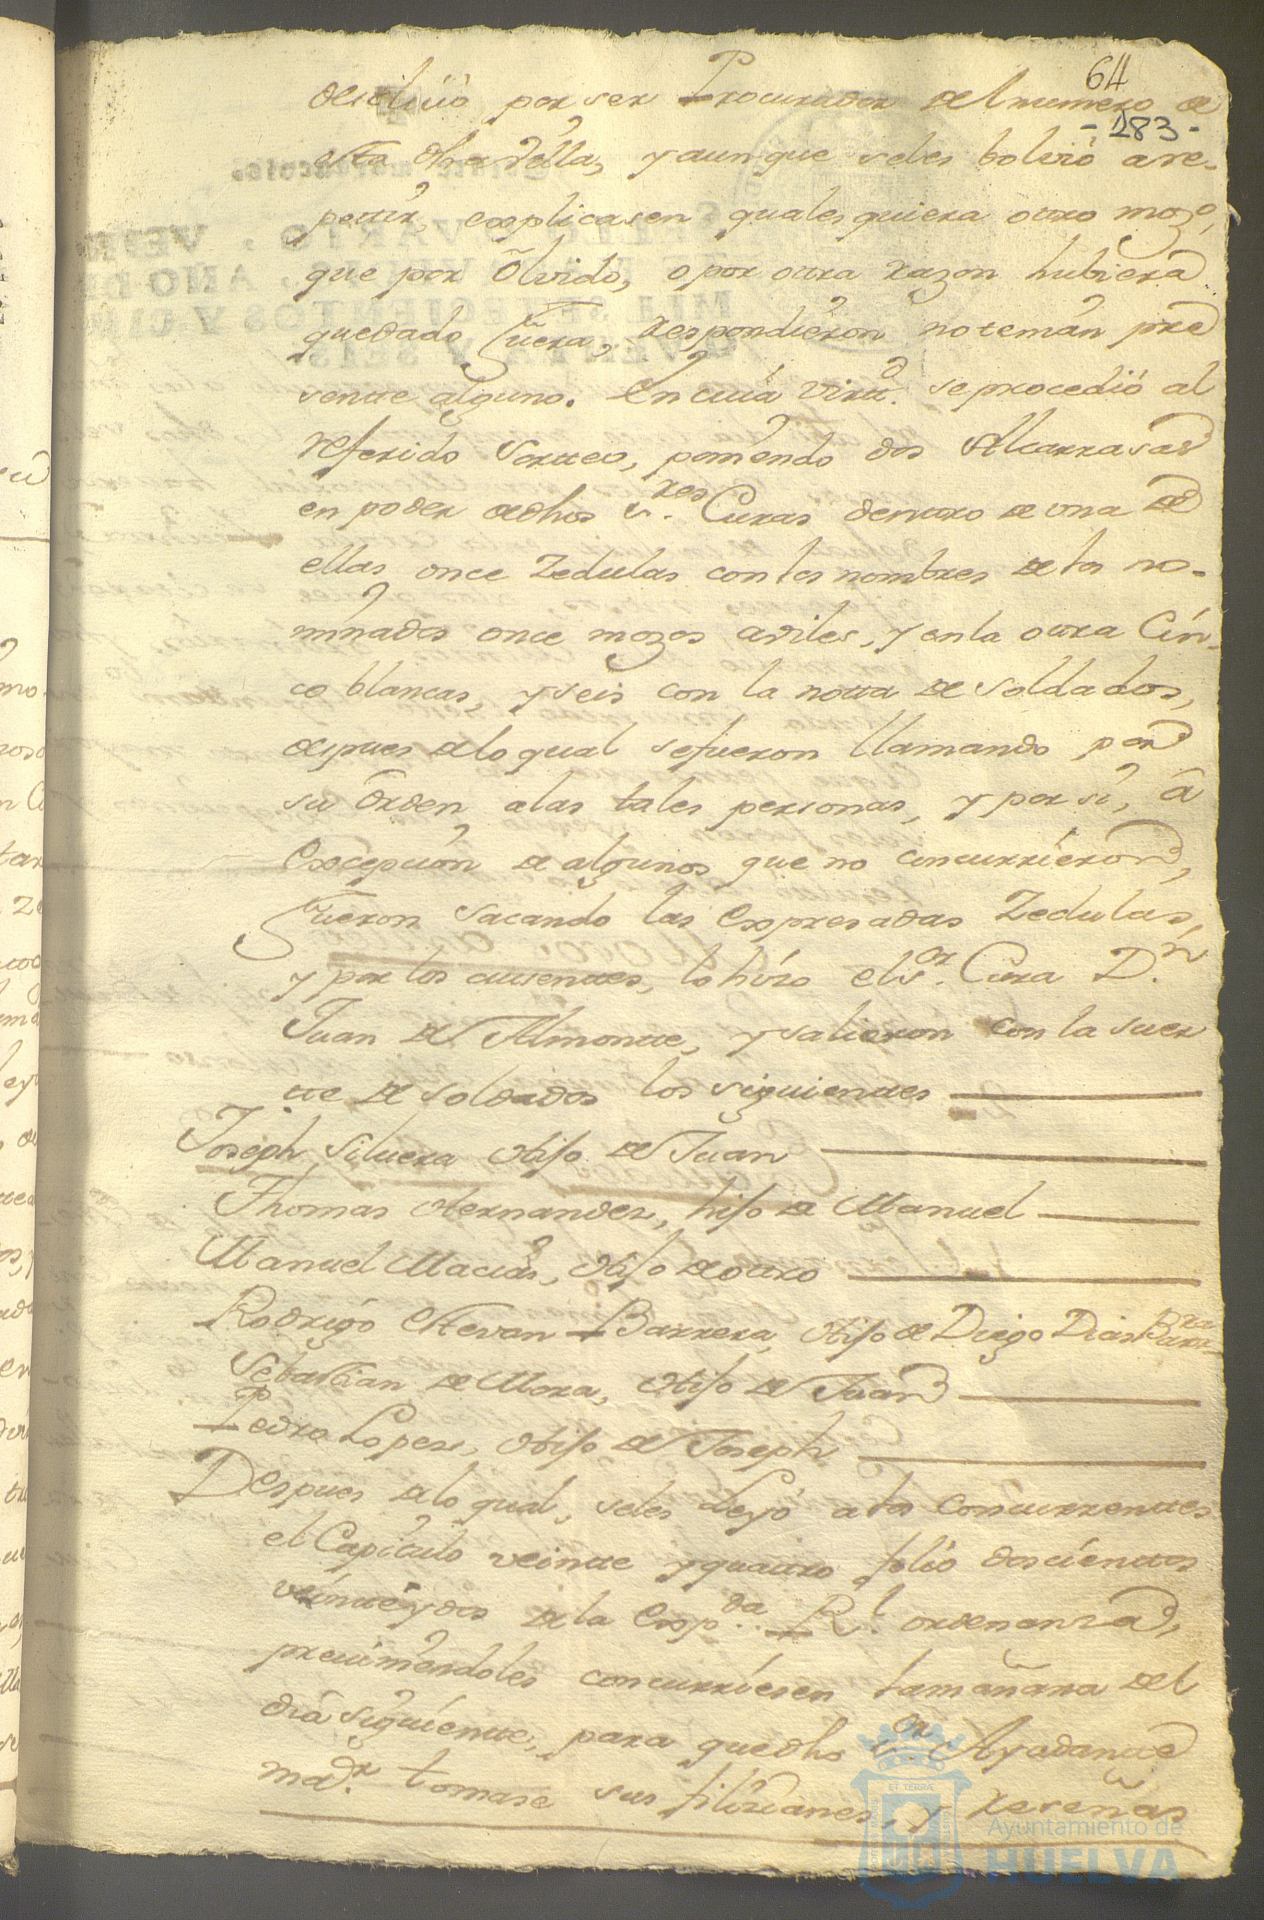 64
-183-
por ser Procurador del numero de
esta dha villa, y aunque seles bolvió a re-
petir, explicasen qualesquiera otro mozo,
que por Olvido, o por otra razon hubiera
quedado fuera, respondieron no tenian pre
sente alguno. En cuia virtd. se procedió al
referido Sorteo, poniendo dos Alcarrasas
en poder de dhos Sres. Curas dentro de una de
ellas once Zedulas con los nombres de los no-
minados once mozos aviles, y en la otra Cin-
co blancas, y seis con la nota de soldados,
despues delo qual se fueron llamando por
su Orden alas tales personas, y por si, á
Excepcion de algunos que no concurrieron,
fueron sacando las Expresadas Zedulas,
y por los ausentes, lo hizo el Sor. Cura Dn.
Juan de Almonte, y salieron con la suer
te de soldados los siguientes
Joseph Siluera Hijo de Juan
Thomas Hernandez, hijo de Manuel
Manuel Macias, Hijo de otro
Rodrigo Estevan Barrera, Hijo de Diego Dias Barra
Sebastian de Mora, Hijo de Juan
Pedro Lopes, Hijo de Joseph
Despues delo qual, seles Leyó a los Concurrentes
el Capitulo veinte y quatro folio doscientos
veinte y dos de la Expda. Rl. ordenanza,
previniendoles concurriesen la mañana del
dia siguiente, para que dho Sor. Ayudante
mar. tomase sus filiaciones, y reseñas
ET TERRÆ
Ayuntamiento de
HUELVA